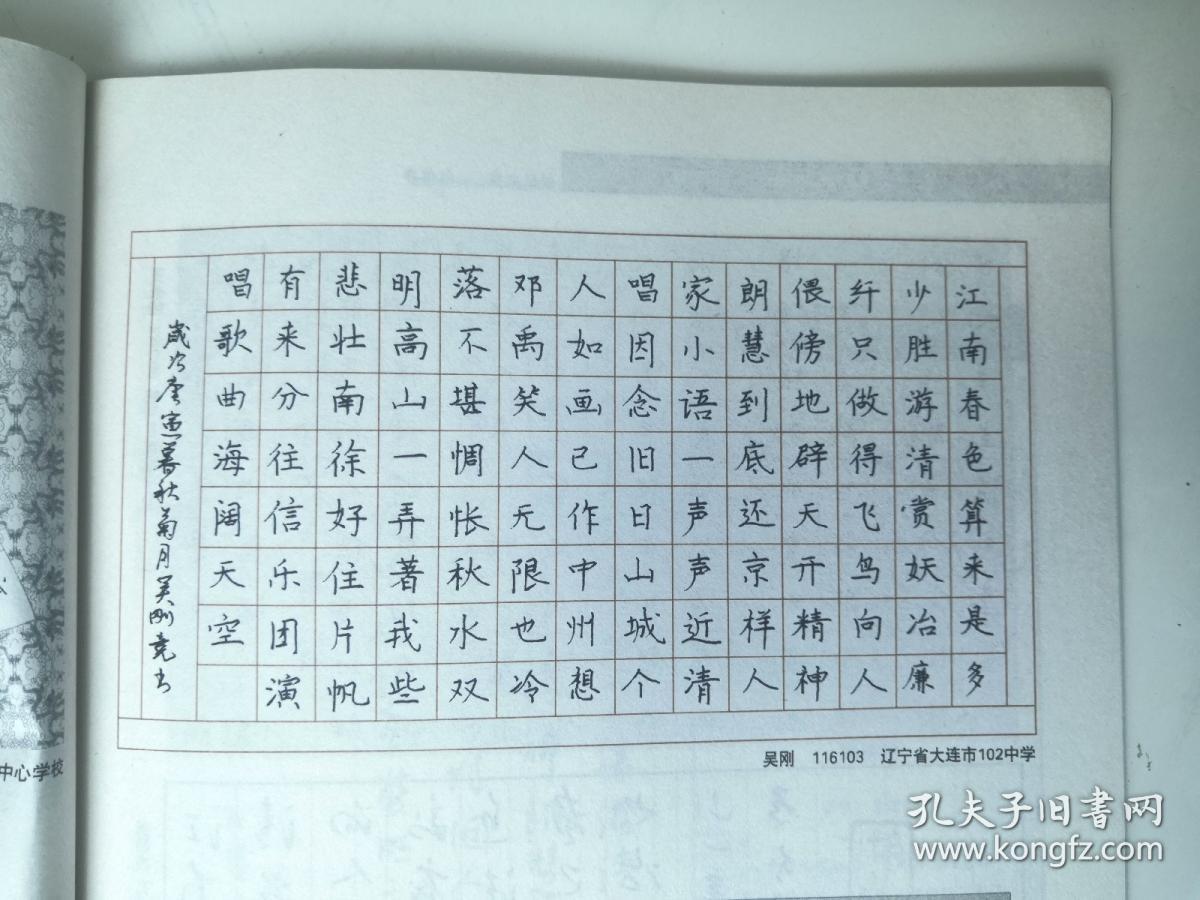 江南春色算来是多
少胜游清赏妖冶廉
纤只做得飞鸟向人
偎傍地辟天开精神
朗慧到底还京样人
家小语一声声近清
唱因念旧日山城个
人如画已作中州想
邓禹笑人无限也冷
落不堪惆怅秋水双
明高山一弄著我些
悲壮南徐好住片帆
有来分往信乐团演
唱歌曲海阔天空
岁次庚寅暮秋菊月吴刚竞书
吴刚 116103 辽宁省大连市102中学
中心学校
孔夫子旧书网
www.kongfz.com